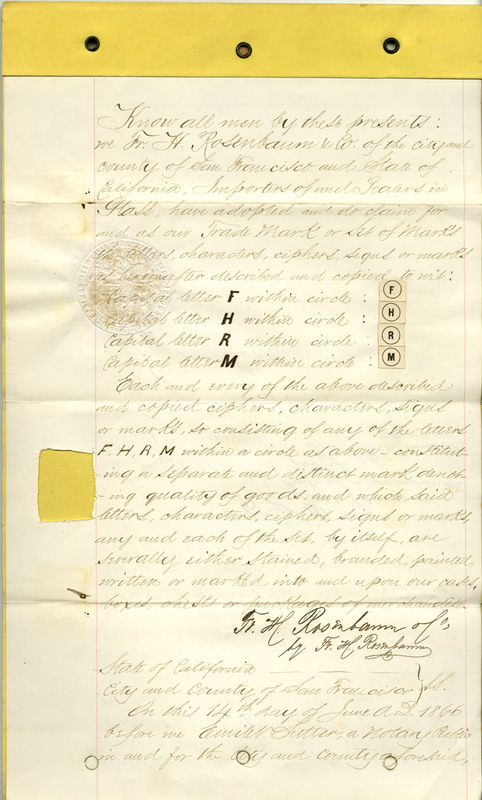 Know all men by these presents:
we Fr. H. Rosenbaum & Co. of the city and
County of San Francisco and State of
California, Importers of and Dealers in
Glass, have adopted and do claim for
and as our Trade Mark or Set of Marks
the letters, characters, ciphers, signs or marks
as hereinafter described and copied to wit:
Capital letter F within circle : F
Capital letter H within circle : H
Capital letter R within circle : R
Capital letter M within circle : M
Each and every of the above described
and copied ciphers, characters, signs
or marks, so consisting of any of the letters
F, H, R, M within a circle as above - constitut-
-ing a separate and distinct mark denot-
-ing quality of goods, and which said
letters, characters, ciphers, signs or marks,
any and each of the set, by itself, are
severally either stained, branded, painted,
written or marked into and upon our cases,
boxes, chests or packages of merchandise.
Fr. H. Rosenbaum & Co
by Fr. H Rosenbaum
State of California
City and County of San Francisco } SS.
On this 14th day of June A.D. 1866
before me Emile Sutter, a Notary Public
in and for the City and County aforesaid,